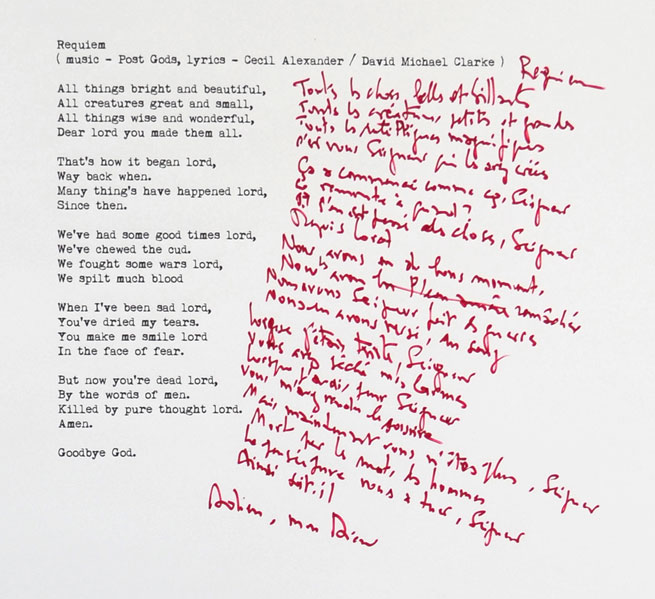 Requiem
( music - Post Gods, lyrics - Cecil Alexander / David Michael Clarke )
All things bright and beautiful,
All creatures great and small,
All things wise and wonderful,
Dear lord you made them all.
That's how it began lord,
Way back when.
Many thing's have happened lord,
Since then.
We've had some good times lord,
We've chewed the cud.
We fought some wars lord,
We spilt much blood
When I've been sad lord,
You've dried my tears.
You make me smile lord
In the face of fear.
But now you're dead lord,
By the words of men.
Killed by pure thought lord.
Amen.
Goodbye God.
Requiem
Touts les choses belles et brillants
Touts les créations, petites et grandes
Touts les magnifiques
c'est vous Seigneur qui les avez créés
Ça a commencé comme ça, Seigneur
ça remonte à quand?
Il s'en est passé des choses, Seigneur
Depuis
Nous avons eu de bons moments,
Nous avons remâcher
Nous avons Seigneur fait des guerres
Nous en avons versé, du sang
Lorsque j'étais triste, Seigneur
Vous avez séché mes larmes
Lorsque j'avais peur Seigneur
Vous m'avez rendu le sourire
Mais, maintenant vous n'êtes plus, Seigneur
Mort par le mot, des hommes
La pensée pure vous a tuer, Seigneur
Ainsi soit-il
Adieu, mon Dieu